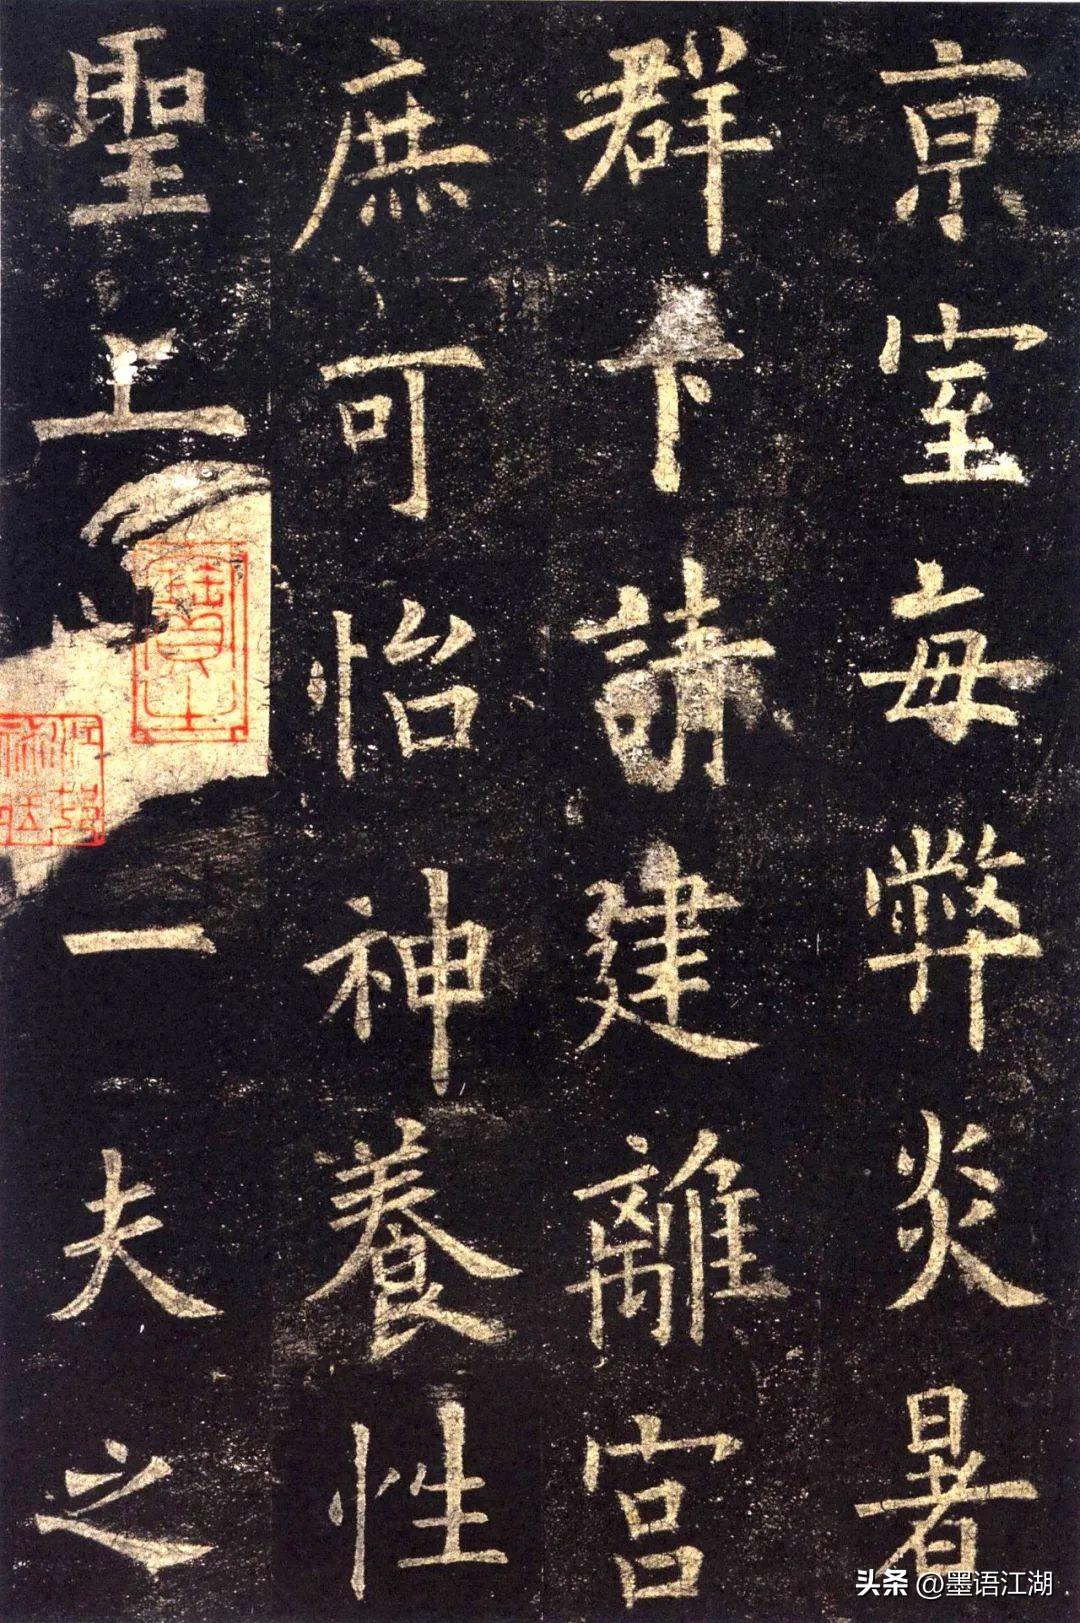 京室每弊炎暑
群下請建離宮
庶可怡神養性
聖上一夫之
头条 @墨语江湖